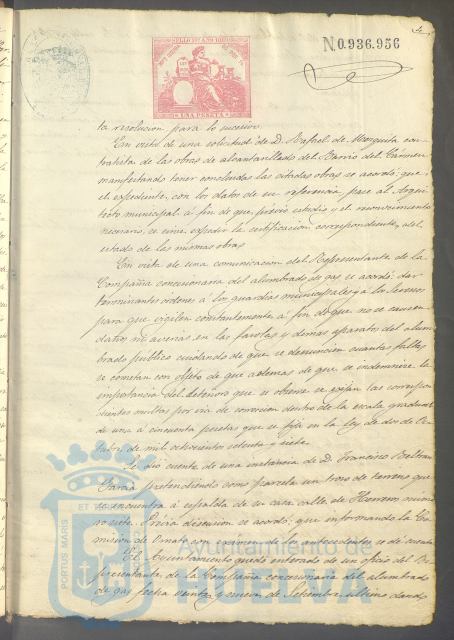 N.0.936.956
SELLO 11º AÑO
UNA PESETA
ta resolucion para lo sucesivo.
En vista de una solicitud de D. Rafael de Mezquita con-
tratista de las obras de alcantarillado del Barrio del Cármen
manifestando tener concluidas las citadas obras se acordó: que
el expediente, con los datos de su referencia pase al Arqui-
tecto municipal á fin de que, prévio estudio y el reconocimiento
necesario, se sirva expedir la certificacion correspondiente, del
estado de las mismas obras
En vista de una comunicacion del Representante de la
Compañia concesionaria del alumbrado de gas se acordó dar
terminantes órdenes á los guardias municipales y á los Serenos
para que vigilen constantemente á fin de que no se causen
daños ni averias en las farolas y demas aparatos del alum-
brado público cuidando de que se denuncien cuantas faltas
se cometan con objeto de que ademas de que se indemnice la
importancia del deterioro que se observe se exijan las correspon-
dientes multas por via de correccion dentro de la escala gradual
de una á cincuenta pesetas que se fija en la Ley de dos de Oc-
tubre de mil ochocientos setenta y siete.
Se dio cuenta de una instancia de D. Francisco Beltran
Garcia pretendiendo como parcela un trozo de terreno que
se encuentra á espalda de su casa calle de Herrero núme-
ro siete. Prévia discusion se acordó: que informando la Co-
mision de Ornato con exámen de los antecedentes, se dé cuenta
El Ayuntamiento quedó enterado de un oficio del Re-
presentante de la Compañia concesionaria del alumbrado
de gas fecha veinte y nueve de Setiembre último dando
PORTUS MARIS ET
Ayuntamiento de
HUELVA